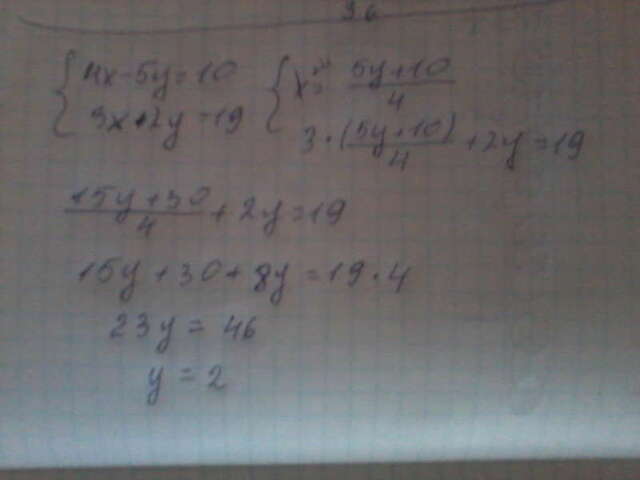 36
{ 4x-5y=10 { x = (5y+10)/4
3x+2y=19 3·(5y+10)/4 +2y=19
(15y+30)/4 + 2y=19
15y+30+8y=19·4
23y=46
y=2